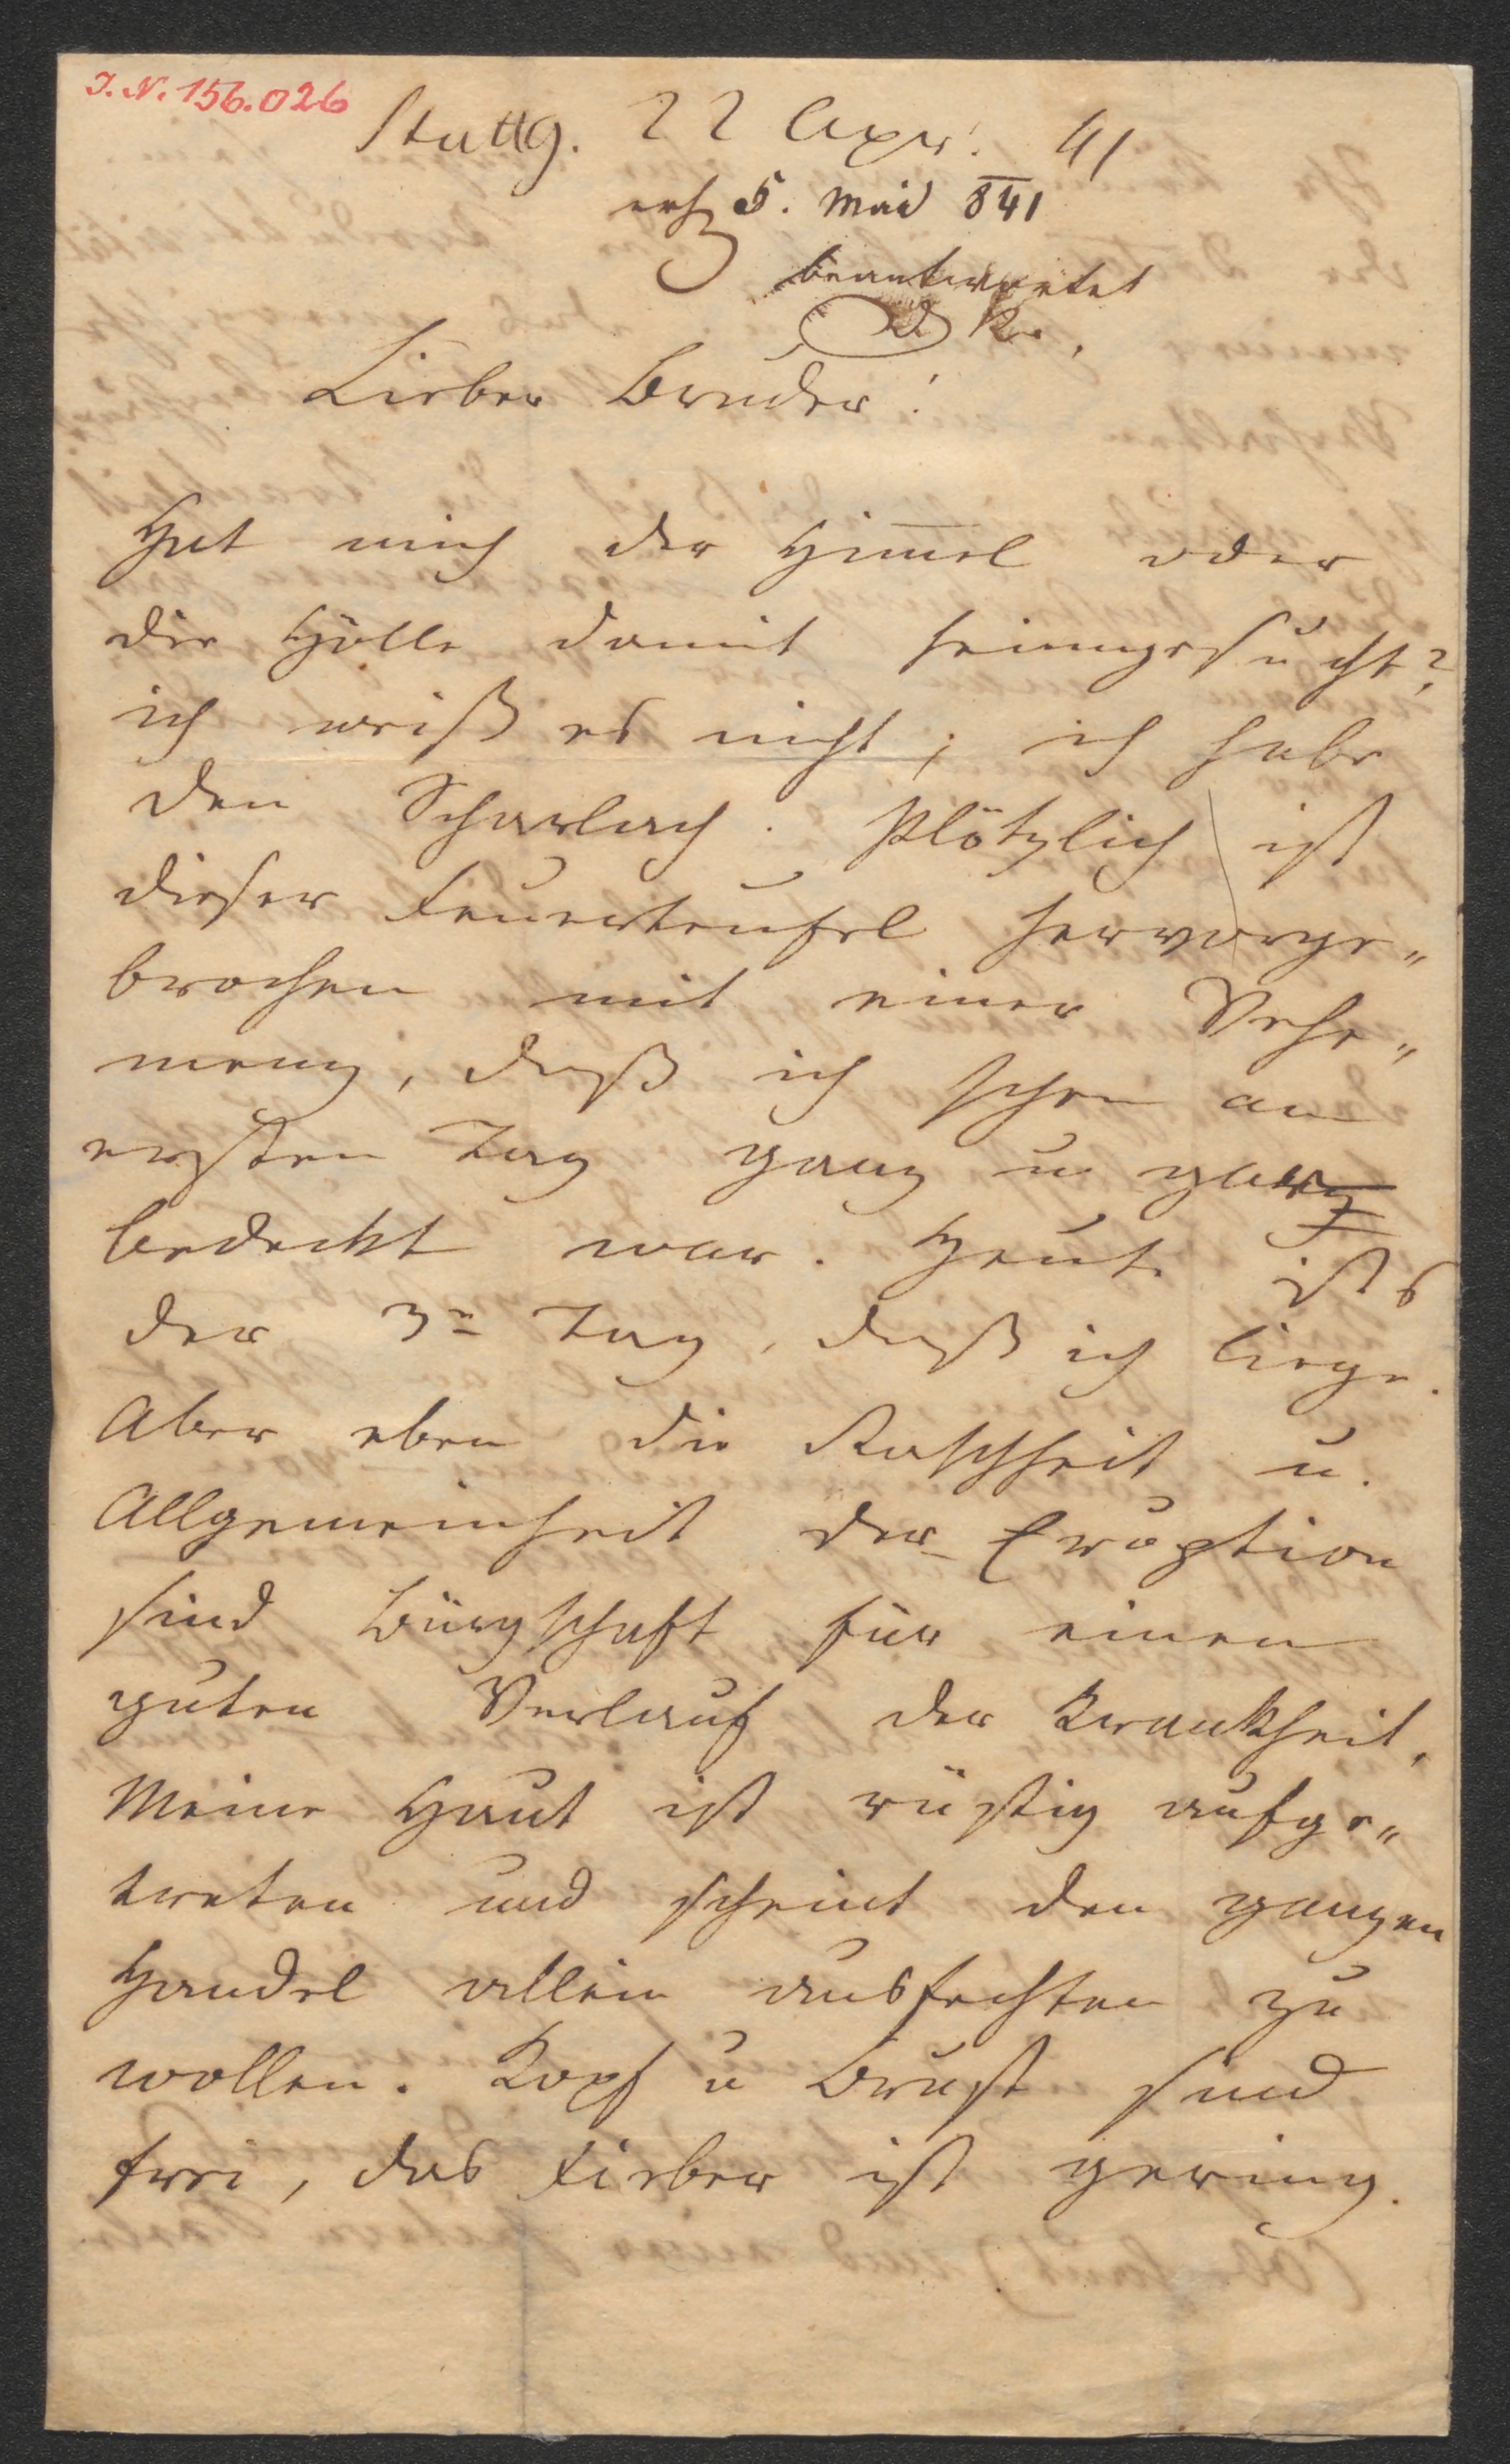 I.N. 156.026
Stuttg. 22 Apr. 41
erh 5. Mai 841
beantwortet
Lieber Bruder!
Hat mich der Him̅el oder
die Hölle damit heimgesucht?
ich weiß es nicht; ich habe
den Scharlach. Plötzlich ist
dieser Feuerteufel hervorge„
brochen mit einer Vehe„
menz, daß ich schon am
ersten Tag ganz u gar
bedeckt war. Heut ists
der 3te Tag, daß ich liege.
Aber eben die Raschheit u.
Allgemeinheit der Eruption
sind Bürgschaft für einen
guten Verlauf der Krankheit.
Meine Haut ist rüstig aufge„
treten und scheint den ganzen
Handel allein ausfechten zu
wollen. Kopf u Brust sind
frei, das Fieber ist gering.